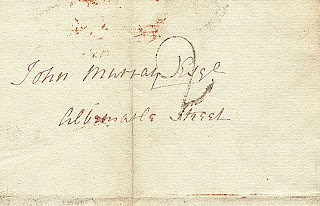 John Murray Esqr
Albemarle Street
2